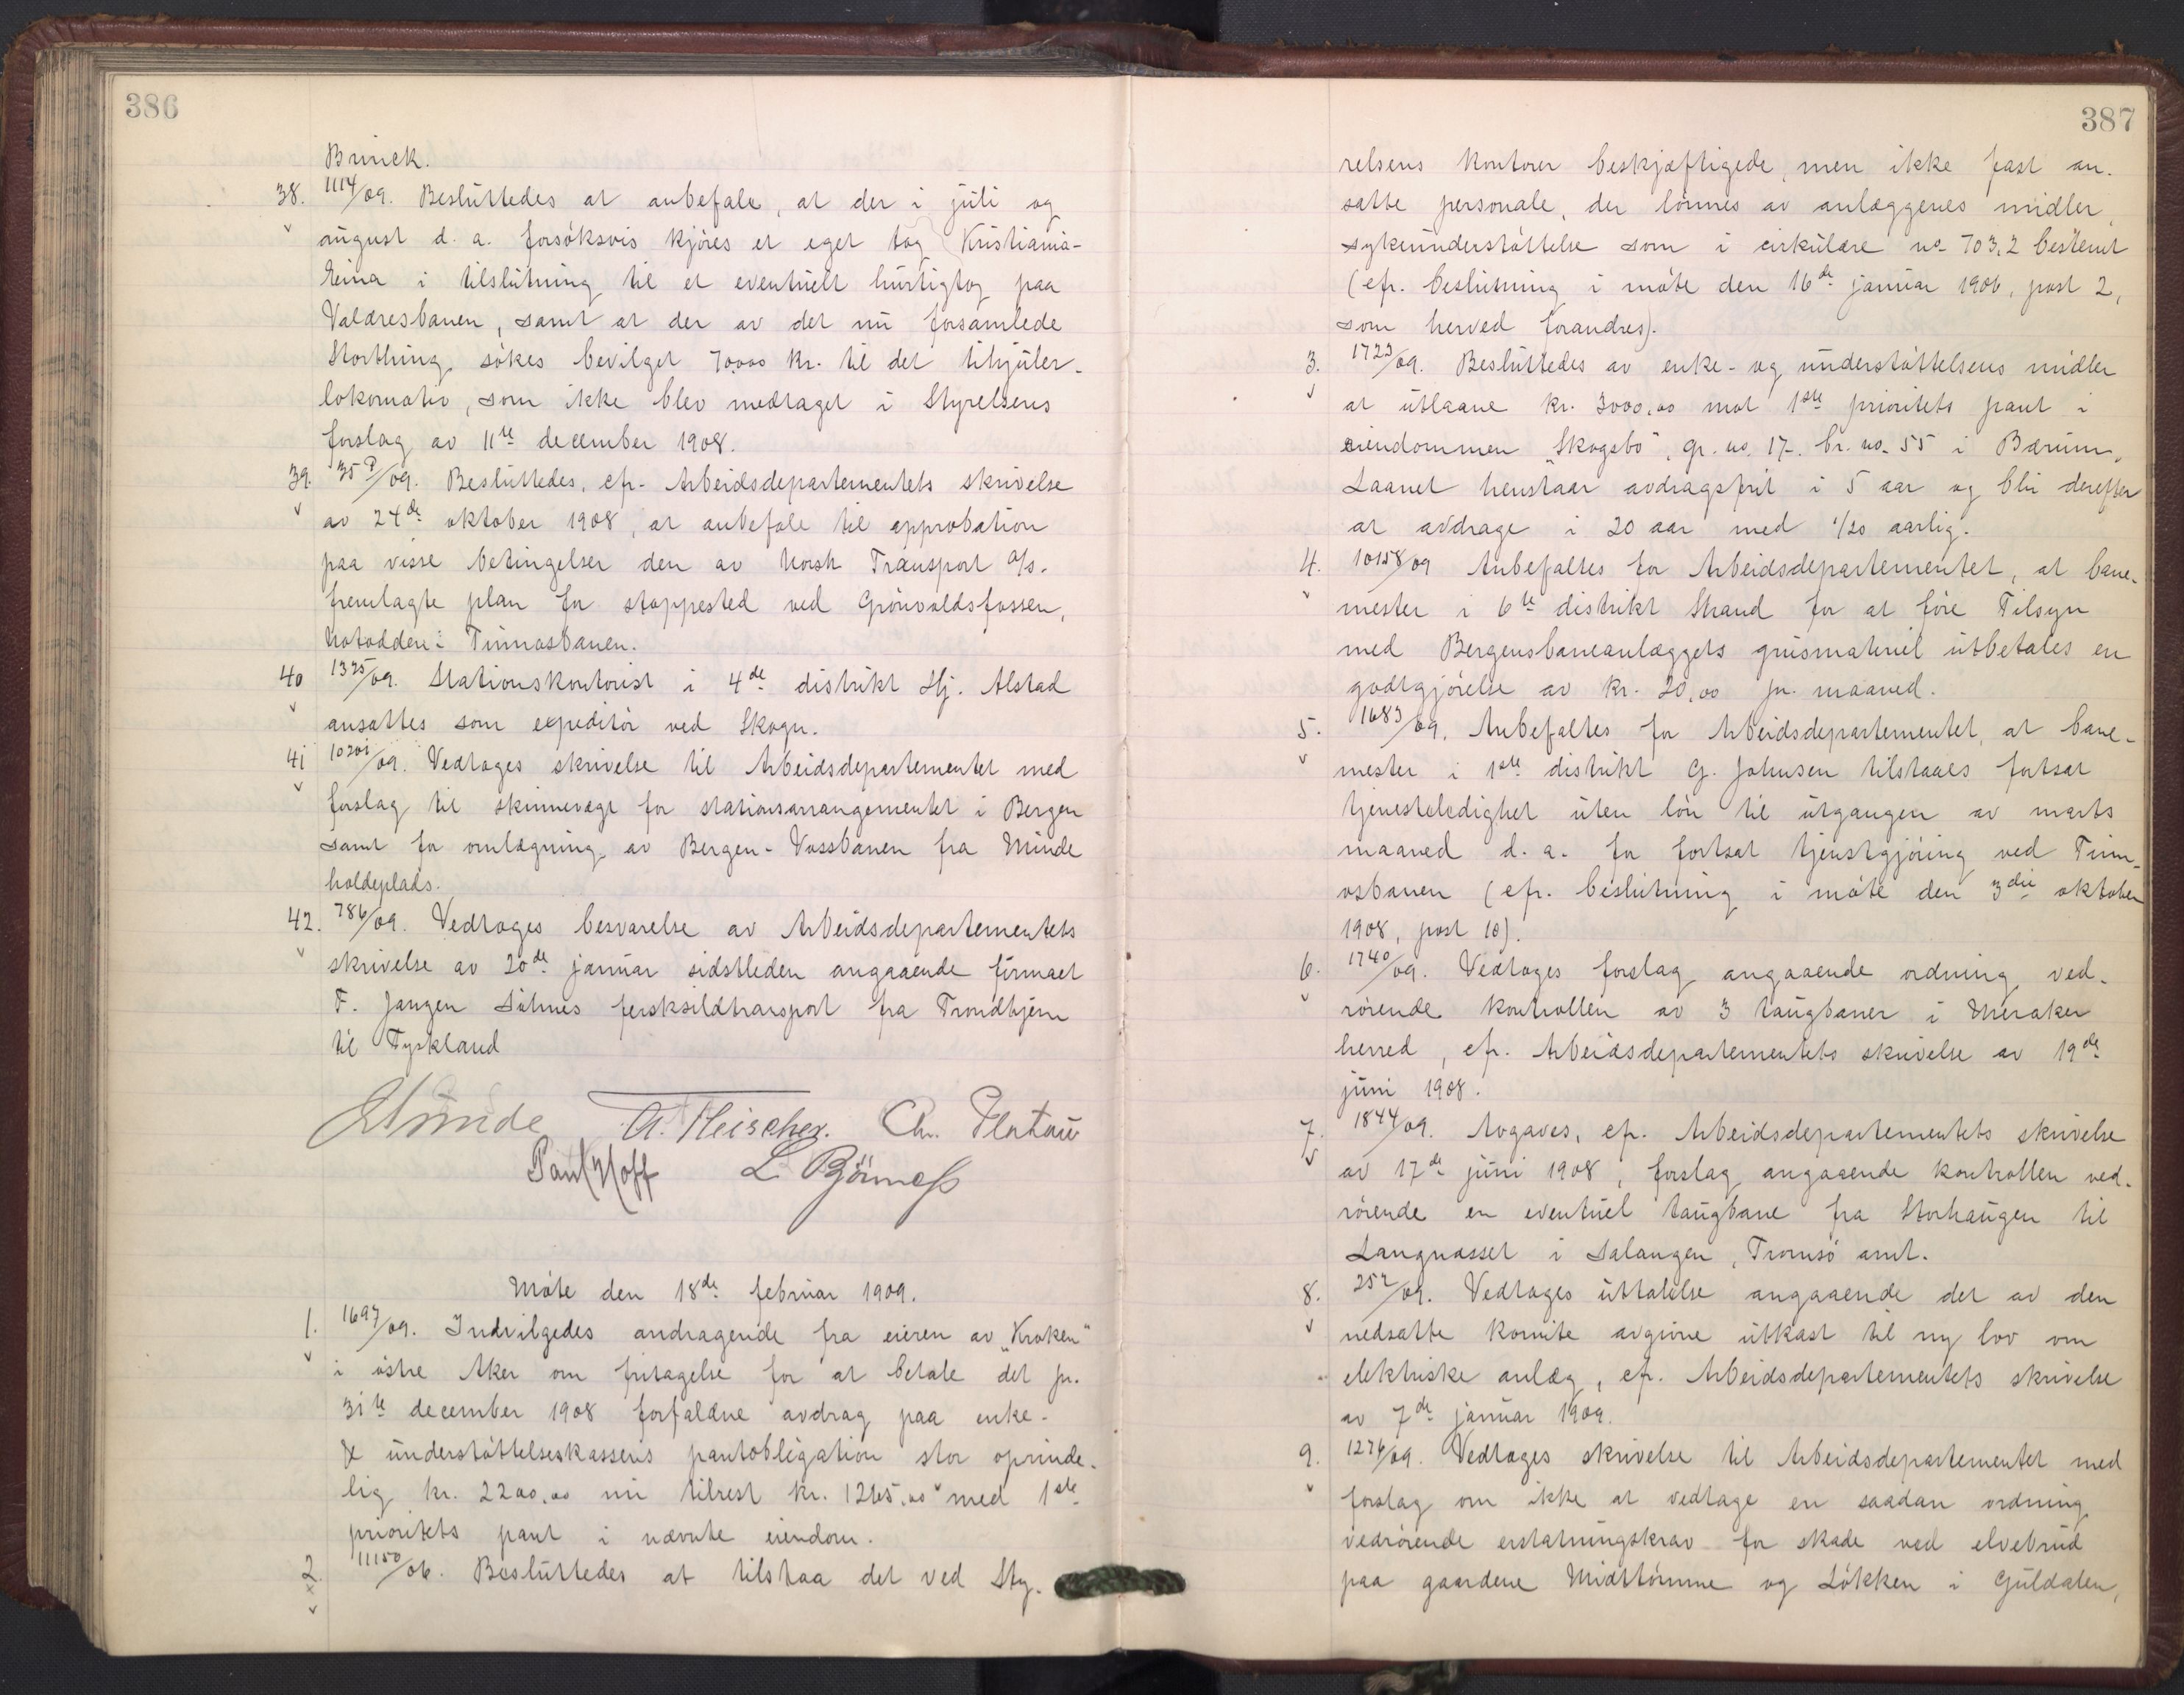 386
Brinck.
38. 1114/09. Besluttedes at anbefale, at der i juli og
august d. a. forsøksvis kjøres et eget tog Kristiania-
Eina i tilslutning til et eventuelt hurtigtog paa
Valdresbanen, samt at der av det nu forsamlede
Storthing søkes bevilget 70,000 kr. til det tihjuler-
lokomotiv, som ikke blev medtaget i Styrelsens
forslag av 11te december 1908.
39. 35P/09. Besluttedes, cfr. Arbeidsdepartementets skrivelse
av 24de oktober 1908, at anbefale til approbation
paa visse betingelser den av Norsk Transport A/s.
fremlagte plan for stoppested ved Grönvoldsfossen,
Notodden: Tinnosbanen.
40 1325/09. Stationskontorist i 4de distrikt Hj. Alstad
ansattes som expeditör ved Skogn.
41 10201/09. Vedtoges skrivelse til Arbeidsdepartementet med
forslag til skinnevægt for stationsarrangementet i Bergen
samt for omlægning av Bergen-Vossbanen fra Minde
holdeplads.
42. 786/09. Vedtoges besvarelse av Arbeidsdepartementets
skrivelse av 20de januar sidstleden angaaende firmaet
F. Jangen Söhnes fersksildtransport fra Trondhjem
til Tyskland
A. Fleischer. Ch. Platou
Paul Hoff L Björness
Møte den 18de februar 1909.
1. 1697/09. Indvilgedes andragende fra eieren av „Kroken"
i østre Aker om fritagelse for at betale det pr.
31te december 1908 forfaldne avdrag paa enke-
& understøttelseskassens pantobligation stor oprinde-
lig kr. 2200,00 nu tilrest kr. 1265,00 med 1ste
prioritets pant i nævnte eiendom.
2. 11150/06. Besluttedes at tilstaa det ved Sty-
387
relsens kontorer beskjæftigede, men ikke fast an-
satte personale, der lønnes av anlæggenes midler,
sykeunderstøttelse som i cirkulære no 703,2 bestemt
(cfr. beslutning i møte den 16de januar 1906, post 2,
som herved forandres).
3. 1722/09. Besluttedes av enke- og understøttelsens midler
at utlaane kr. 3000,00 mot 1ste prioritets pant i
eiendommen „Skogsbo", gr. no. 17. br. no. 55 i Bærum.
Laanet henstaar avdragsfrit i 5 aar og blir derefter
at avdrage i 20 aar med 1/20 aarlig.
4. 10158/09 Anbefaltes for Arbeidsdepartementet, at bane-
mester i 6te distrikt Strand for at føre Tilsyn
med Bergensbaneanlæggets grusmateriel utbetales en
godtgjørelse av kr. 20,00 pr. maaned.
5. 1683/09. Anbefaltes for Arbeidsdepartementet, at bane-
mester i 1ste distrikt G. Johnsen tilstaaes fortsat
tjenesteledighet uten løn til utgangen av marts
maaned d. a. for fortsat tjenstgjøring ved Tinn-
osbanen (cfr. beslutning i møte den 3die oktober
1908, post 10).
6. 1740/09. Vedtoges forslag angaaende ordning ved-
rørende kontrollen av 3 taugbaner i Meraker
herred, cfr. Arbeidsdepartementets skrivelse av 19de
juni 1908.
7. 1844/09. Avgaves, cfr. Arbeidsdepartementets skrivelse
av 17de juni 1908, forslag angaaende kontrollen ved-
rørende en eventuel taugbane fra Storhaugen til
Langnasset i Salangen, Tromsø amt.
8. 252/09. Vedtoges uttalelse angaaende det av den
nedsatte komite avgivne utkast til ny lov om
elektriske anlæg, cfr. Arbeidsdepartementets skrivelse
av 7de januar 1909.
9. 1276/09. Vedtoges skrivelse til Arbeidsdepartementet med
forslag om ikke at vedtage en saadan ordning
vedrørende erstatningskrav for skade ved elvebrud
paa gaardene Midttømme og Løkken i Guldalen,